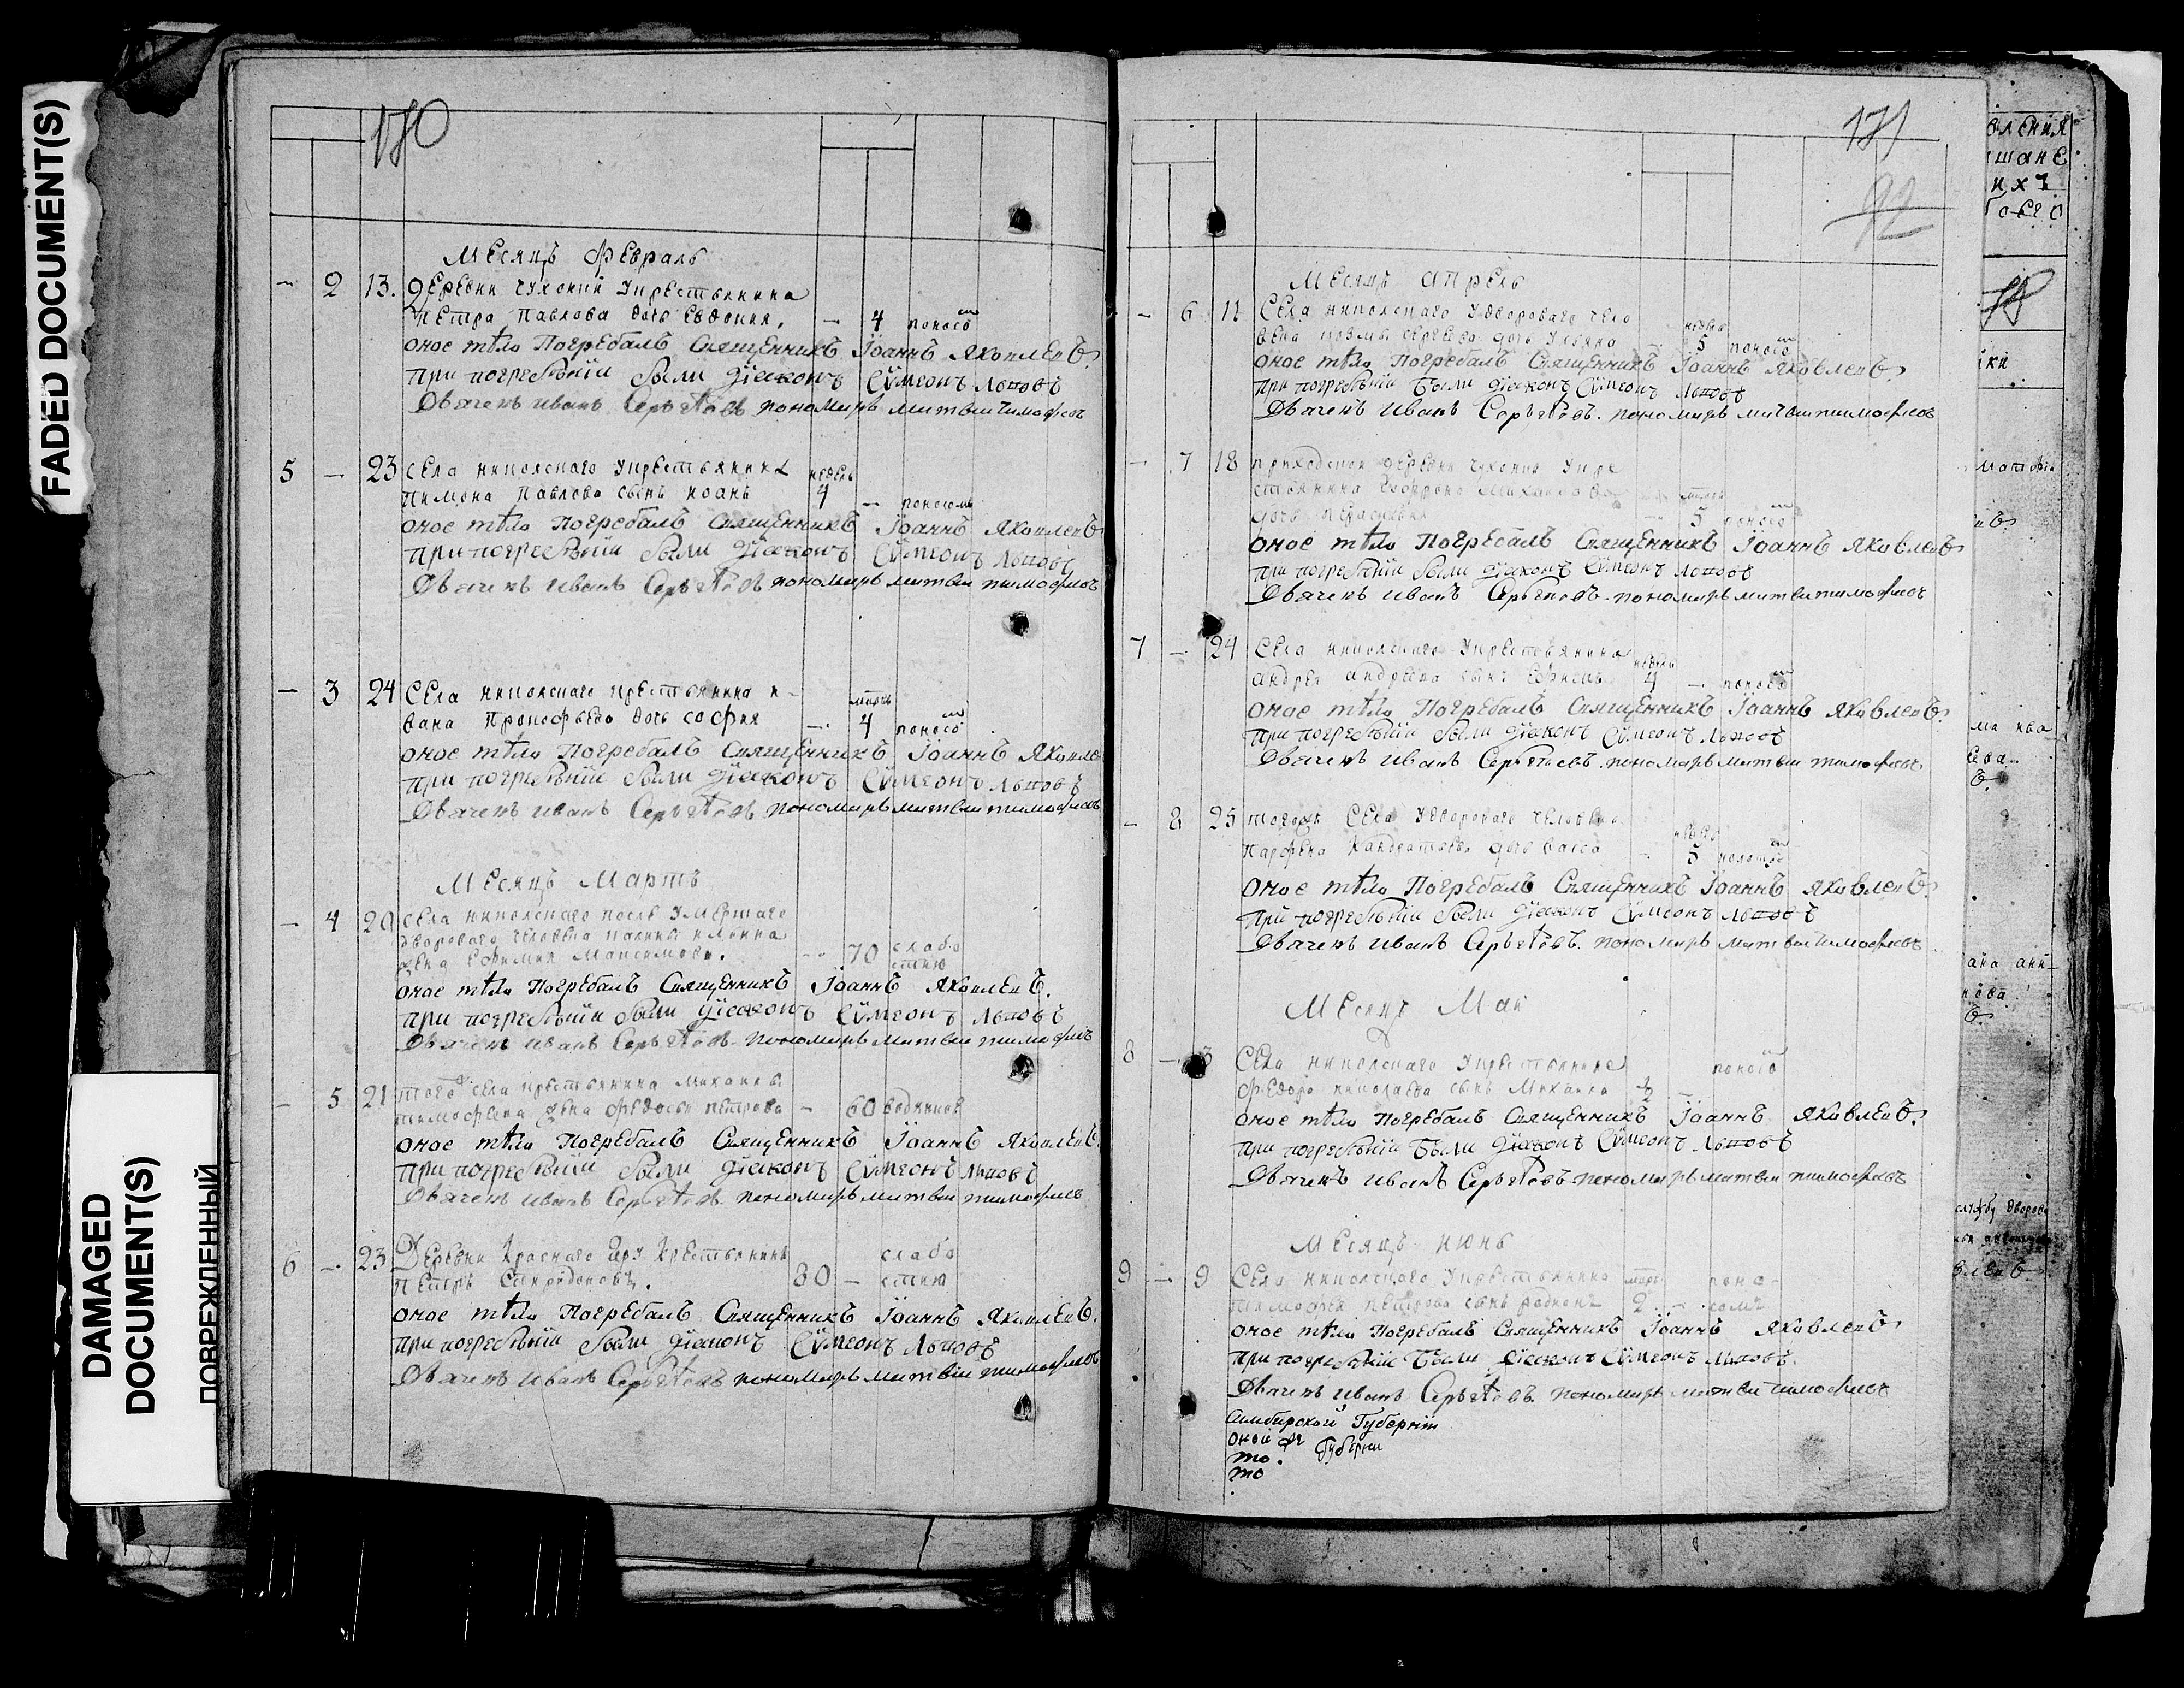 FADED DOCUMENT(S)
DAMAGED
DOCUMENT(S)
ПОВРЕЖДЕННЫЙ
170
Месяцъ Февраль
– 2 13. деревни Чухонки у крестьянина
Петра Павлова дочь Евдокия. – 4 поносо
оное тѣло Погребалъ Священникъ Іоаннъ Яковлевъ
при погребѣніи были діаконъ Сѵмеонъ Льповъ
Дьячекъ Иванъ Сергѣевъ пономарь матвеи тимофеевъ
5 – 23 села никольскаго у крестьянина недель
Пимона Павлова сынъ иоанъ 4 – поносомъ
оное тѣло погребалъ Священникъ Іоаннъ Яковлевъ
при погребѣніи были діаконъ Сѵмеонъ Льповъ
Дьячекъ Иванъ Сергѣевъ пономарь матвеи тимофеевъ
– 3 24 Села никольскаго крестьянина и-
вана Прокофьева дочь софия – 4 поносо
оное тѣло погребалъ Священникъ Іоаннъ Яковле
при погребѣніи были діаконъ Сѵмеонъ Льповъ
Дьячекъ иванъ Сергѣевъ пономарь матвеи тимофеевъ
Месяцъ Мартъ
– 4 20 села никольскаго после умершаго
двороваго человека
жена Ефимия Максимова. – 70 слабо
стию
оное тѣло погребалъ Священникъ Іоаннъ Яковлевъ.
при погребѣніи были діаконъ Сѵмеонъ Льповъ
Дьячекъ иванъ Сергѣевъ пономарь матвеи тимофеевъ
– 5 21 того села крестьянина Михаила
тимофеева жена Федосья петрова – 60 водяной
оное тѣло погребалъ Священникъ Іоаннъ Яковлевъ.
при погребѣніи были діаконъ Сѵмеонъ Льповъ
Дьячекъ иванъ Сергѣевъ пономарь матвеи тимофеевъ
6 – 23 Деревни Краснаго Яру Крестьянинъ слабо
Петръ Спиридоновъ. 30 – стию
оное тѣло погребалъ Священникъ Іоаннъ Яковлевъ.
при погребѣніи были діаконъ Сѵмеонъ Льповъ
Дьячекъ иванъ Сергѣевъ пономарь матвеи тимофеевъ
171
92
Месяцъ апрель
– 6 11 Села никольскаго у двороваго чело
века сергеева дочь Ульяна недель 5 поносо
оное тѣло погребалъ Священникъ Іоаннъ Яковлевъ.
при погребѣніи были діаконъ Сѵмеонъ Льповъ
Дьячекъ иванъ Сергѣевъ. пономарь матвеи тимофеевъ
– 7 18 приходской деревни Чухонки у кре
стьянина Михайлова
дочь – 5 поносо
оное тѣло погребалъ Священникъ Іоаннъ Яковлевъ
при погребѣніи были діаконъ Сѵмеонъ Льповъ
Дьячекъ иванъ Сергѣевъ. пономарь матвеи тимофеевъ
7 – 24 Села никольскаго у крестьянина недель
андрея андреева сынъ 4 – поносо
оное тѣло погребалъ Священникъ Іоаннъ Яковлевъ.
при погребѣніи были діаконъ Сѵмеонъ Льповъ
Дьячекъ иванъ Сергѣевъ. пономарь матвеи тимофеевъ
– 8 25 тогожъ Села у двороваго человека
Парфена Кандратьева дочь васса – 5
оное тѣло погребалъ Священникъ Іоаннъ Яковлевъ
при погребѣніи были діаконъ Сѵмеонъ Льповъ
Дьячекъ иванъ Сергѣевъ. пономарь матвеи тимофеевъ
Месяцъ Маи
8 – 3 Села никольскаго у крестьянина поносо
Федора николаева сынъ Михаила ½ –
оное тѣло погребалъ Священникъ Іоаннъ Яковлевъ.
при погребѣніи были діаконъ Сѵмеонъ Льповъ
Дьячекъ иванъ Сергѣевъ пономарь матвеи тимофеевъ
Месяцъ июнь
9 – 9 Села никольскаго у крестьянина поно-
тимофея петрова сынъ родионъ 2 – сомъ
оное тѣло погребалъ Священникъ Іоаннъ Яковлевъ
при погребѣніи были діаконъ Сѵмеонъ Льповъ.
Дьячекъ иванъ Сергѣевъ. пономарь матвеи тимофеевъ
Симбирской Губерніи
оной же Губерни
то.
то